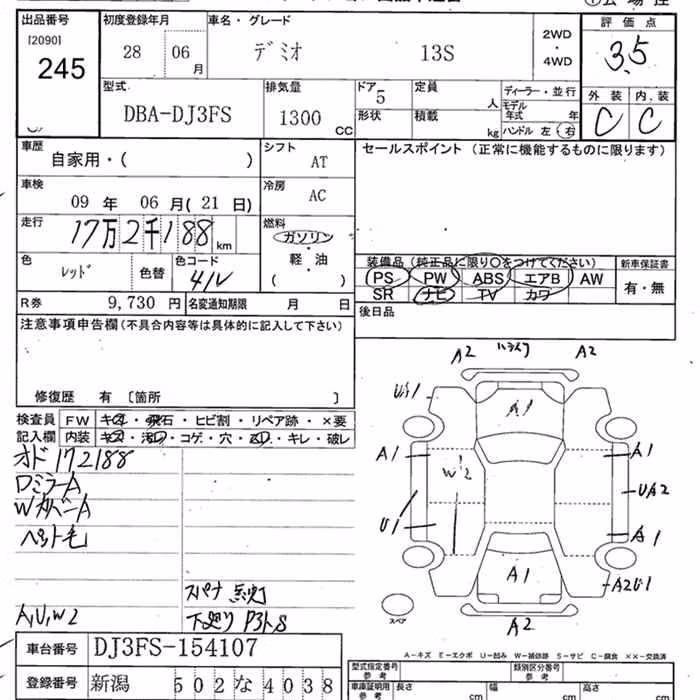 出品番号
[2090]
245
初度登録年月
28 06 月
車名・グレード
デミオ 13S
2WD
・
4WD
評価点
3.5
外装 内装
C C
型式
DBA-DJ3FS
排気量
1300 CC
ドア
5
形状
定員
人
積載
kg
ディーラー・並行
モデル
年式 年
ハンドル 左 右
車歴
自家用・( )
シフト
AT
セールスポイント (正常に機能するものに限ります)
車検
09 年 06 月( 21 日)
冷房
AC
走行
17万2千188 km
燃料
ガソリン
・
軽・油
( )
色
レッド
色替
色コード
41V
装備品 (純正品に限り○をつけてください)
PS PW ABS エアB AW
SR ナビ TV カワ
新車保証書
有・無
R券 9,730 円
名変通知期限 月 日
後日品
注意事項申告欄(不具合内容等は具体的に記入して下さい)
修復歴 有 〔箇所 〕
検査員 FW キズ・飛石・ヒビ割・リペア跡・×要
記入欄 内装 キズ・汚レ・コゲ・穴・・キレ・破レ
オド172188
ロミラーA
WカバーA
ペット毛
A,U,W2
スパナ
下廻り
A2 A2
U1
A1
A1 A1
W2
UA2
U1
A1
A1
A2U1
A2
スペア
A-キズ E-エクボ U-凹み W-補修跡 S-サビ C-腐食 ××-交換済
車台番号 DJ3FS-154107
登録番号 新潟 502な4038
型式指定番号
参考
類別区分番号
参考
車庫証明用
参考
長さ cm
幅 cm
高さ cm